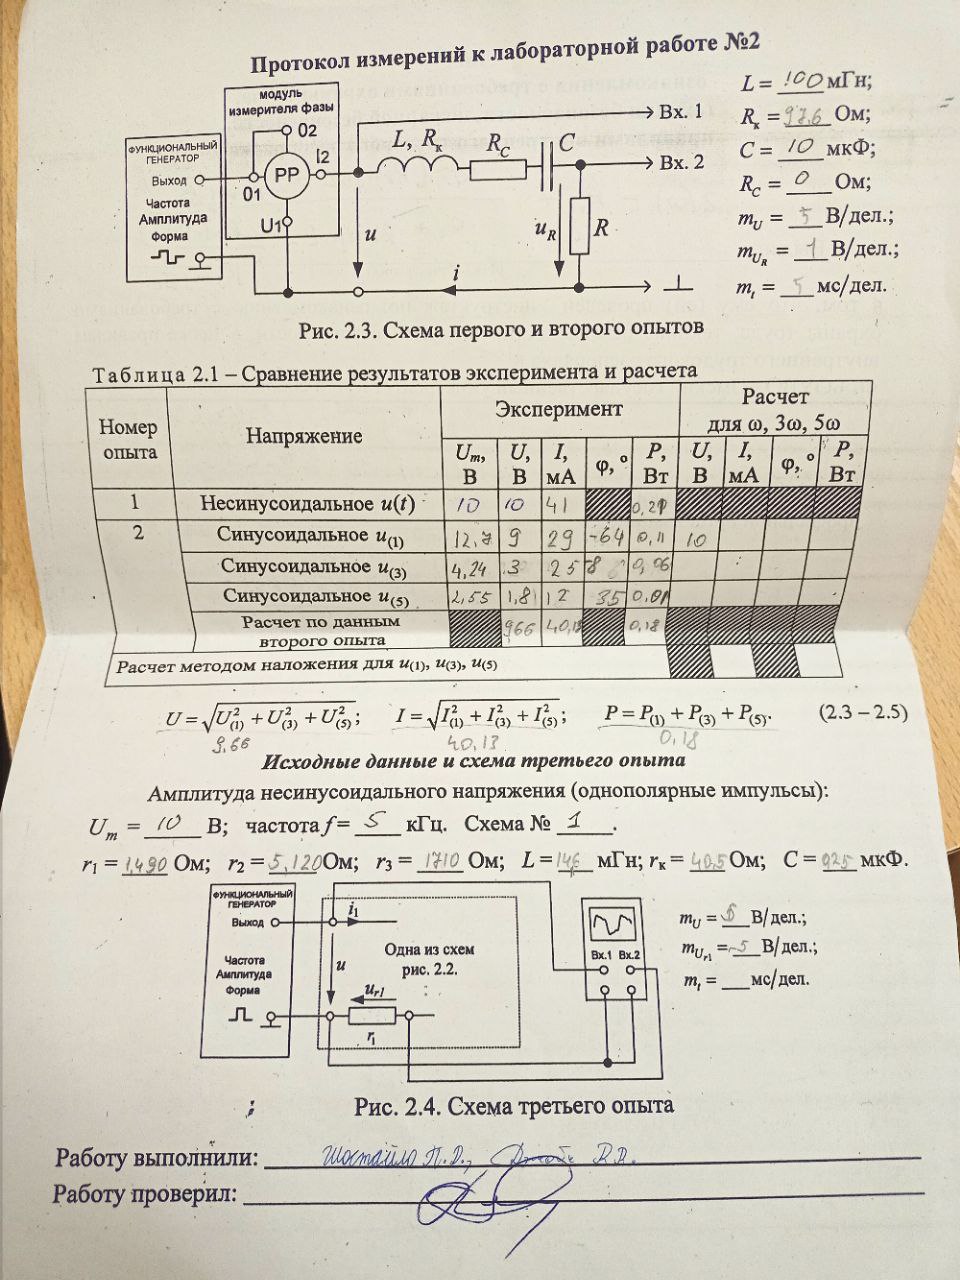 Протокол измерений к лабораторной работе №2
L = 100 мГн;
Rк = 97,6 Ом;
C = 10 мкФ;
RC = 0 Ом;
mU = 5 В/дел.;
mUR = 1 В/дел.;
mt = 5 мс/дел.
ФУНКЦИОНАЛЬНЫЙ
ГЕНЕРАТОР
Выход
Частота
Амплитуда
Форма
модуль
измерителя фазы
O2
PP
I2
01
U1
L, Rк
RC
C
Вх. 1
Вх. 2
u
uR
R
i
Рис. 2.3. Схема первого и второго опытов
Таблица 2.1 – Сравнение результатов эксперимента и расчета
Номер опыта
Напряжение
Эксперимент
Расчет для ω, 3ω, 5ω
Um, В
U, В
I, мА
φ, °
P, Вт
U, В
I, мА
φ, °
P, Вт
1 Несинусоидальное u(t) 10 10 41 0,21
2 Синусоидальное u(1) 12,7 9 29 -64 0,11 10
Синусоидальное u(3) 4,24 3 25 8 0,06
Синусоидальное u(5) 2,55 1,8 12 35 0,01
Расчет по данным второго опыта 966 40,13 0,18
Расчет методом наложения для u(1), u(3), u(5)
U = √U²(1) + U²(3) + U²(5); I = √I²(1) + I²(3) + I²(5); P = P(1) + P(3) + P(5). (2.3 – 2.5)
9,66 40,13 0,18
Исходные данные и схема третьего опыта
Амплитуда несинусоидального напряжения (однополярные импульсы):
Um = 10 В; частота f = 5 кГц. Схема № 1.
r1 = 1,490 Ом; r2 = 5,120 Ом; r3 = 1710 Ом; L = 146 мГн; rк = 40,5 Ом; C = 925 мкФ.
ФУНКЦИОНАЛЬНЫЙ
ГЕНЕРАТОР
Выход
Частота
Амплитуда
Форма
i1
u
Одна из схем
рис. 2.2.
ur1
r1
Вх.1 Вх.2
mU = 5 В/дел.;
mUr1 = 5 В/дел.;
mt = ___ мс/дел.
Рис. 2.4. Схема третьего опыта
Работу выполнили: Шостайло П.D.,
Работу проверил: